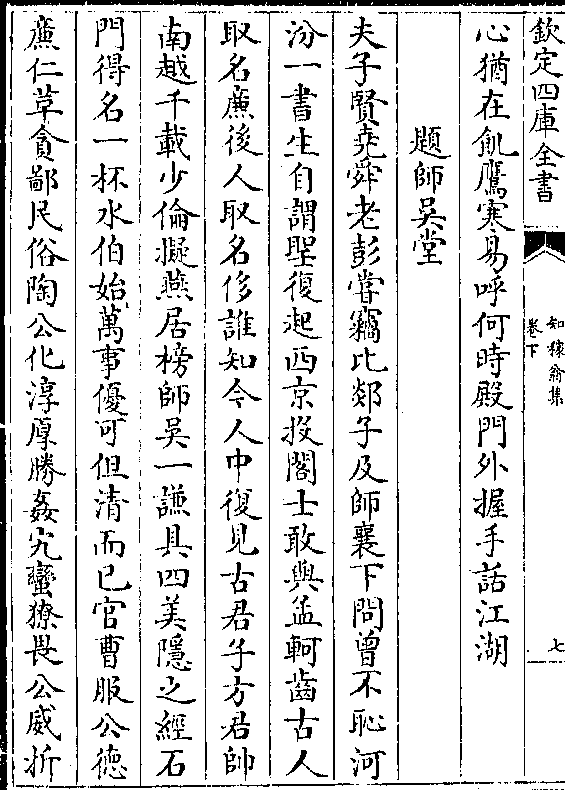 欽定四庫全書
知稼翁集
卷下
七
心猶在飢鷹寒易呼何時殿門外握手話江湖
題師吳堂
夫子賢堯舜老彭嘗竊比郯子及師襄下問曾不恥河
汾一書生自謂聖復起西京投閣士敢與孟軻齒古人
取名廉後人取名侈誰知今人中復見古君子方君帥
南越千載少倫擬燕居榜師吳一謙具四美隱之經石
門得名一杯水伯始萬事優可但清而已官曹服公德
廉仁草貪鄙民俗陶公化淳厚勝姦宄蠻獠畏公威折